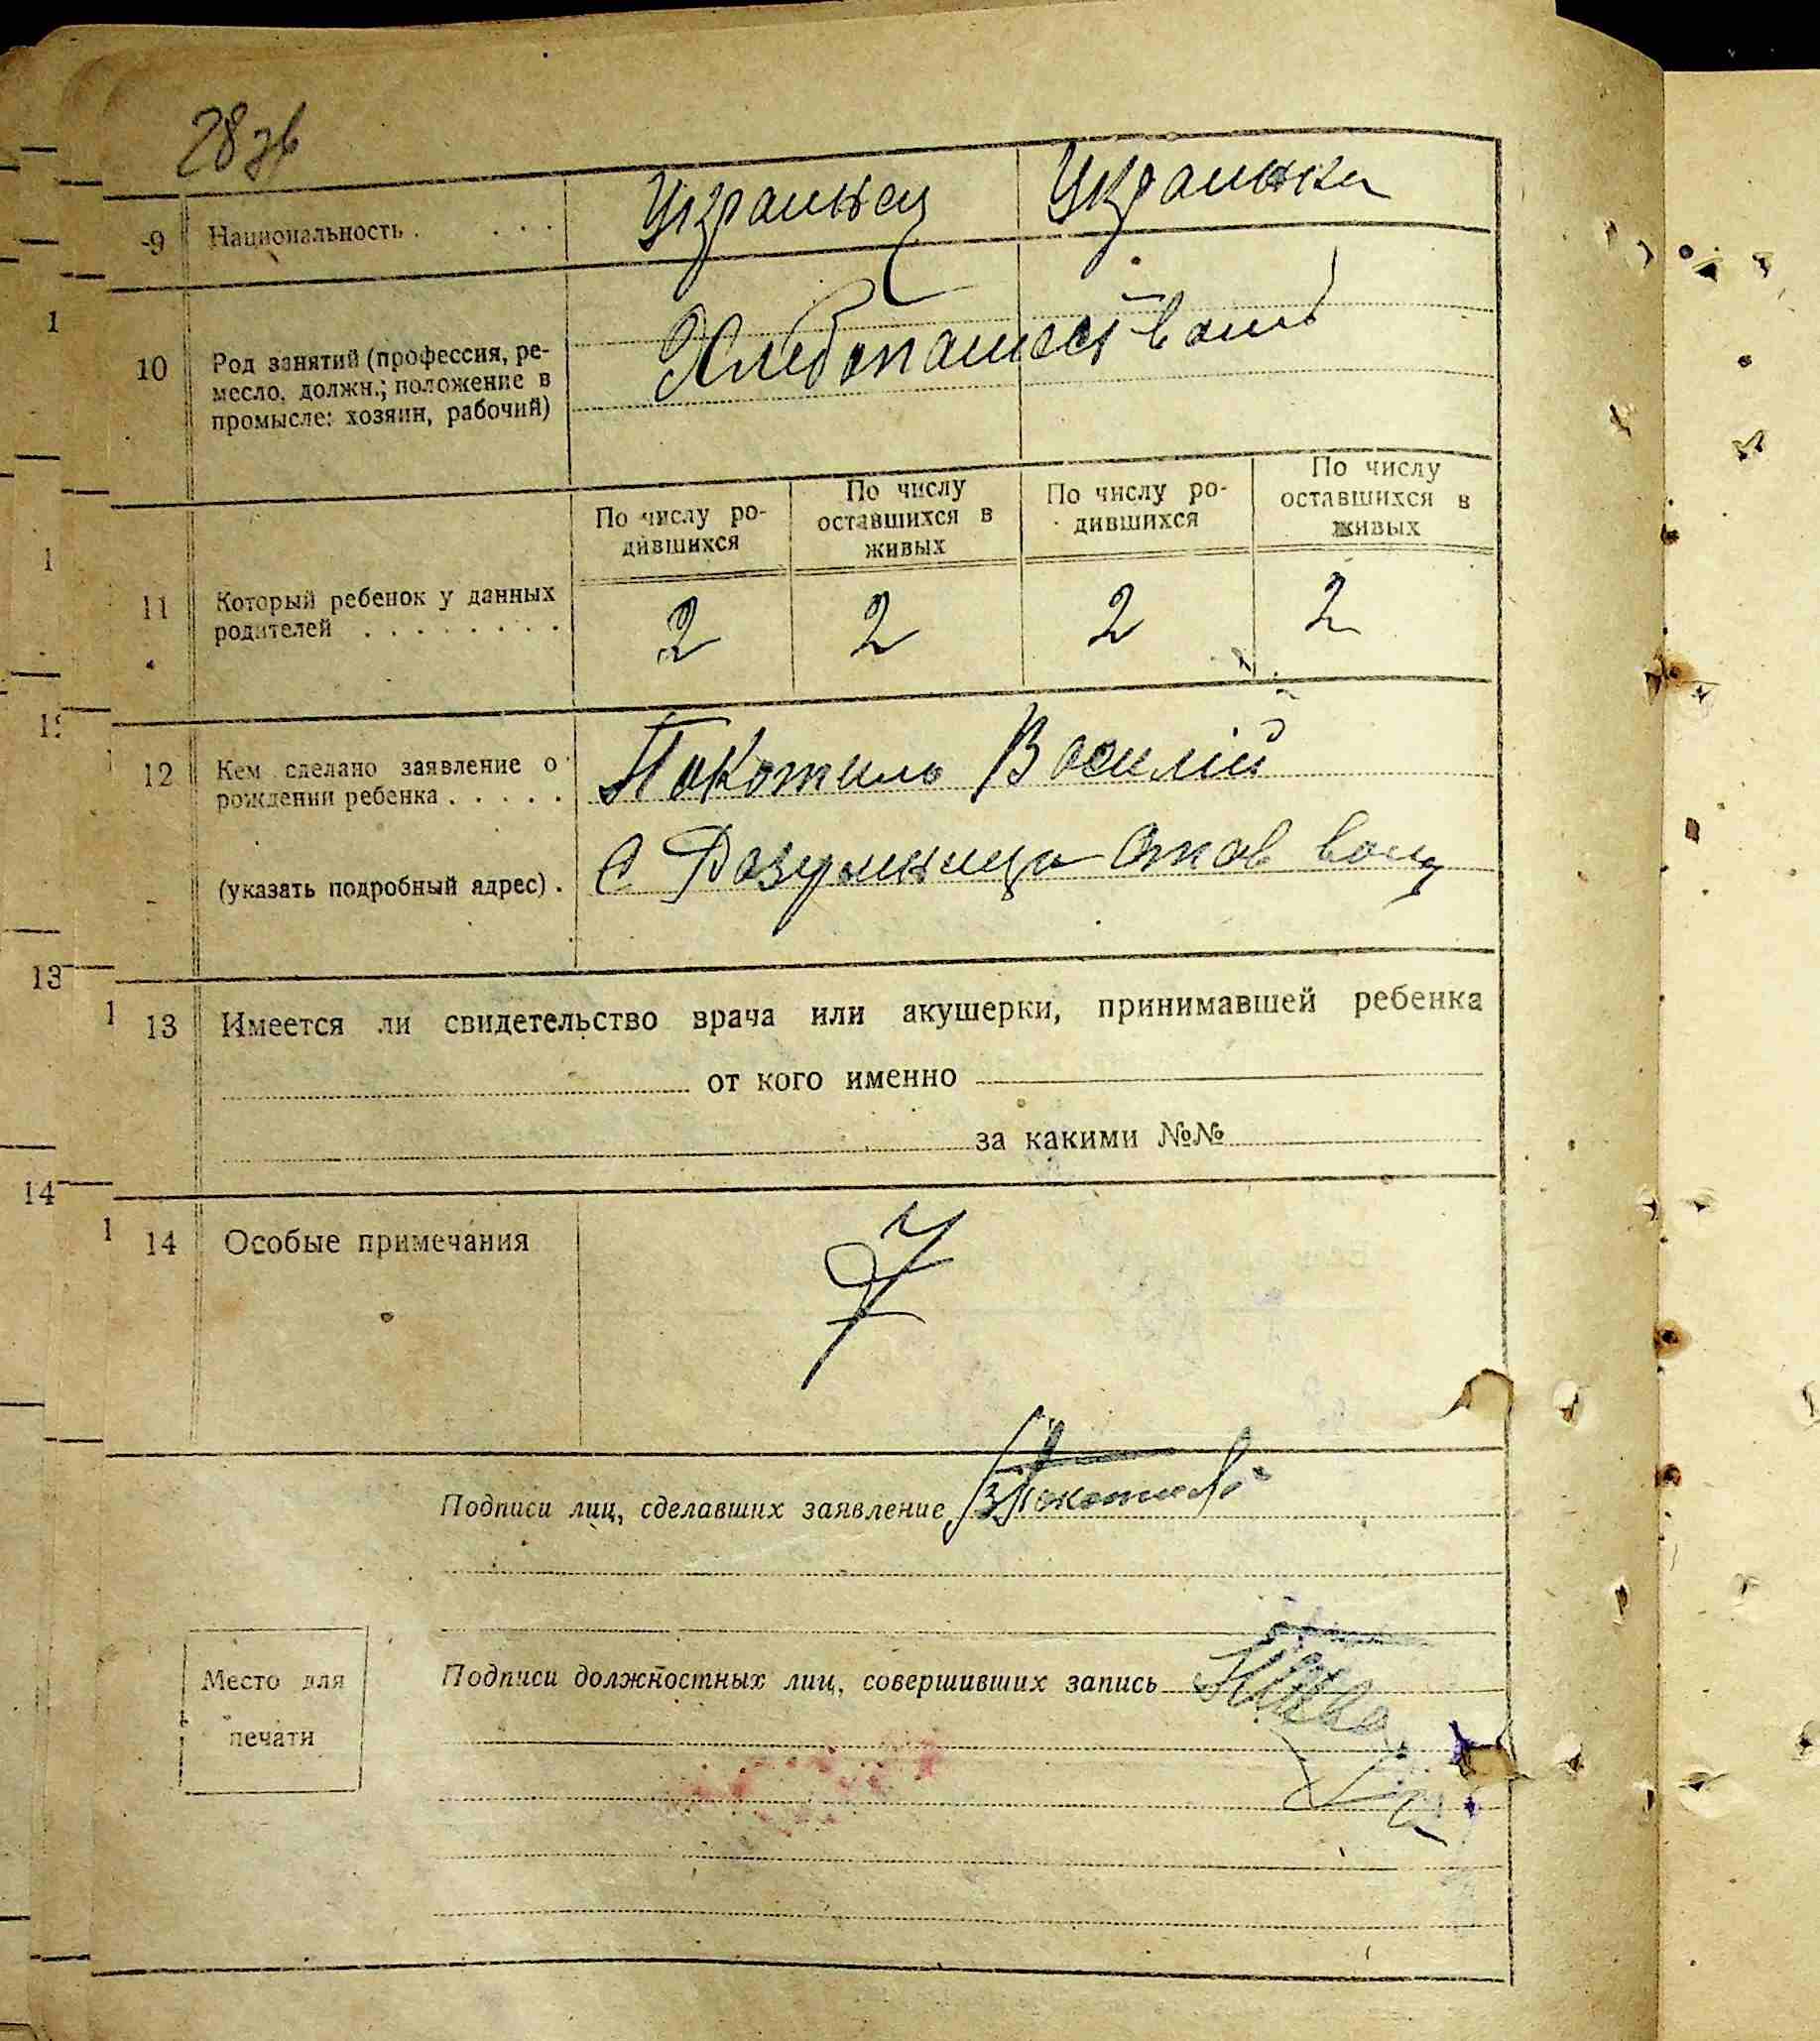 28зв
9 Национальность . . . . Украинец Украинка
10 Род занятий (профессия, ре-
месло, должн.; положение в
промысле: хозяин, рабочий)
Хлебопашеством
По числу ро-
дившихся
По числу
оставшихся в
живых
По числу ро-
дившихся
По числу
оставшихся в
живых
11 Который ребенок у данных
родителей . . . . . . . .
2 2 2 2
12 Кем сделано заявление о
рождении ребенка . . . . .
Покотило Василий
(указать подробный адрес) . С Розумница Стов вол
13 Имеется ли свидетельство врача или акушерки, принимавшей ребенка
от кого именно
за какими №№
14 Особые примечания
Подписи лиц, сделавших заявление В Покотило
Подписи должностных лиц, совершивших запись
Место для
печати
1
1
13
1
14
1